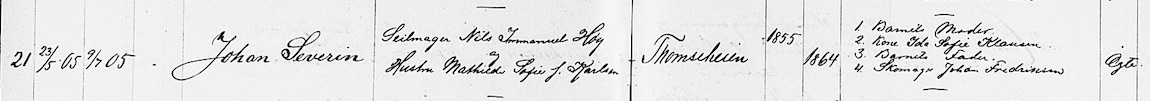 21 23/5 05 9/7 05 Johan Severin Seilmager Nils Immanuel Høy og Hustru Mathilde Sofie f. Karlsen Thomseheien 1855 1864 1. Barnets Moder. 2. Kone Ida Sofie Klausen. 3. Barnets Fader. 4. Skomager Johan Fredriksen Egte